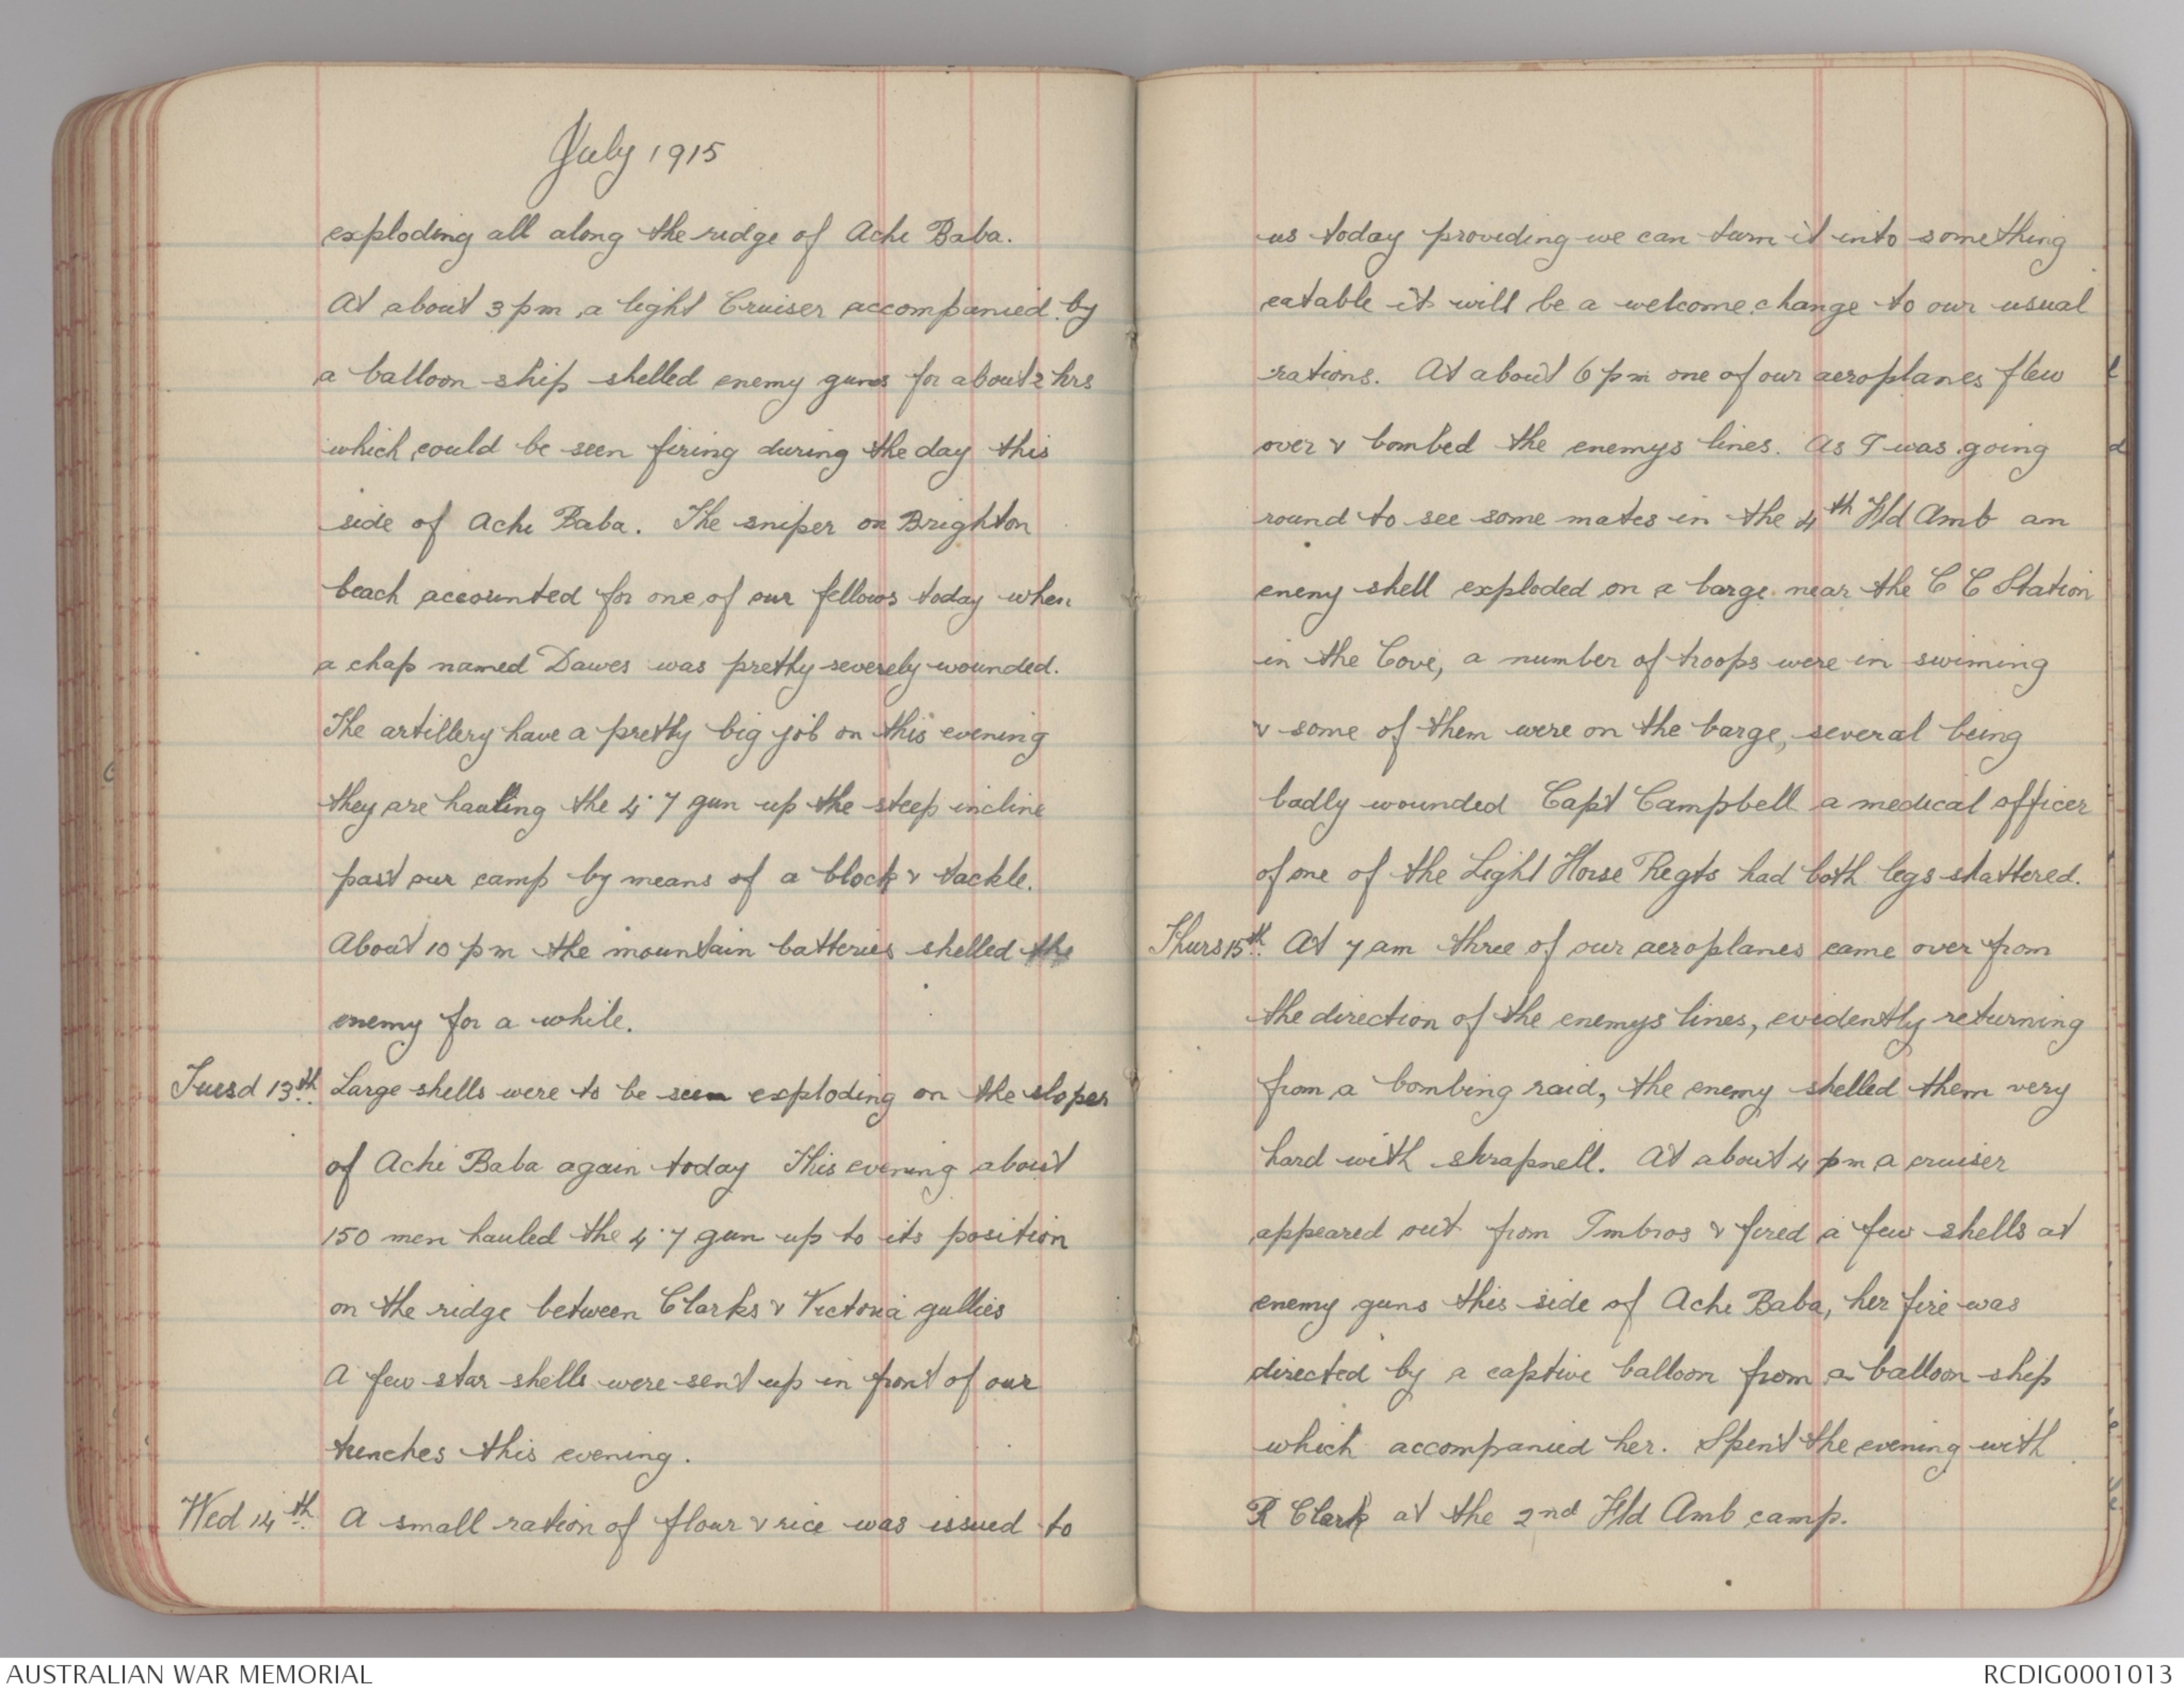 July 1915
exploding all along the ridge of Achi Baba.
At about 3 pm a light Cruiser accompanied by
a balloon ship shelled enemy guns for about 2 hrs
which could be seen firing during the day this
side of Achi Baba. The sniper on Brighton
beach accounted for one of our fellows today when
a chap named Dawes was pretty severely wounded.
The artillery have a pretty big job on this evening
they are hauling the 4.7 gun up the steep incline
past our camp by means of a block & tackle.
About 10 pm the mountain batteries shelled the
enemy for a while.
Tuesd 13th. Large shells were to be seen exploding on the slopes
of Achi Baba again today This evening about
150 men hauled the 4.7 gun up to its position
on the ridge between Clarks & Victoria gullies
A few star shells were sent up in front of our
trenches this evening.
Wed 14th. A small ration of flour & rice was issued to
us today providing we can turn it into something
eatable it will be a welcome change to our usual
rations. At about 6 pm one of our aeroplanes flew
over & bombed the enemys lines. As I was going
round to see some mates in the 4th Fld Amb an
enemy shell exploded on a barge near the C C Station
in the Cove, a number of troops were in swiming
& some of them were on the barge, several being
badly wounded Capt Campbell a medical officer
of one of the Light Horse Regts had both legs shattered.
Thurs 15th. At 7 am three of our aeroplanes came over from
the direction of the enemys lines, evidently returning
from a bombing raid, the enemy shelled them very
hard with shrapnell. At about 4 pm a cruiser
appeared out from Imbros & fired a few shells at
enemy guns this side of Achi Baba, her fire was
directed by a captive balloon from a balloon ship
which accompanied her. Spent the evening with
R Clark at the 2nd Fld Amb camp.
AUSTRALIAN WAR MEMORIAL
RCDIG0001013